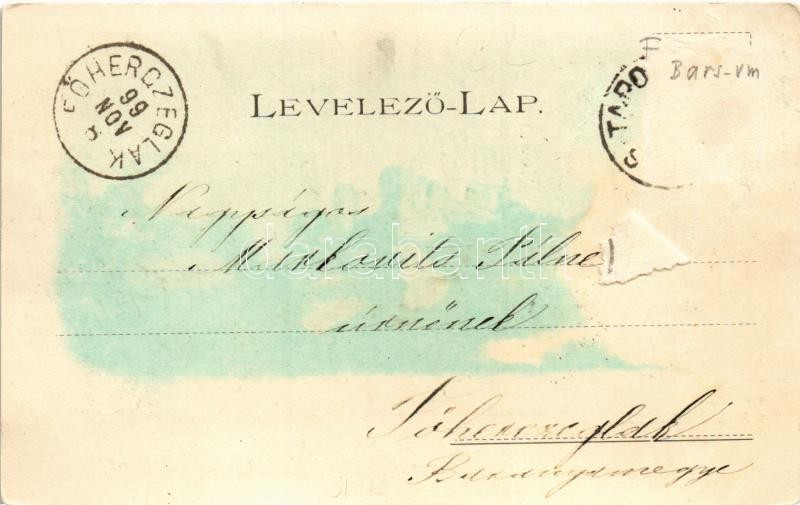 FŐHERCZEGLAK
99
NOV
8
LEVELEZŐ-LAP.
S. TARO
Bars-vm
Nagyságos
Markovits Pálné
úrnőnek
darabanth
Főherczeglak
Baranyamegye